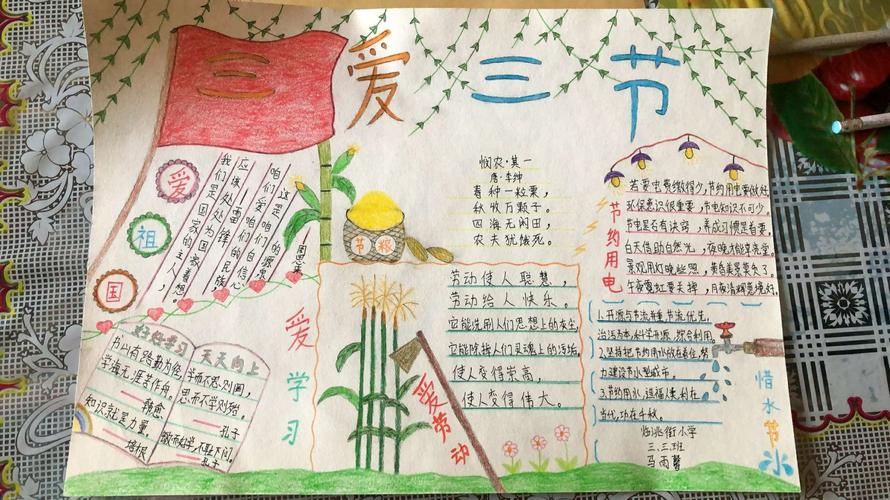 三爱三节
爱
祖
国
我们是国家的主人，
应该处处为国家着想。
咱们爱咱们的民族
这是咱们自信心
周恩来
好好学习
天天向上
书山有路勤为径
学海无涯苦作舟。
韩愈
知识就是力量。
培根
学而不思则罔，
思而不学则殆。
孔子
敏而好学，不耻下问。
孔子
爱学习
节粮
悯农·其一
唐·李绅
春种一粒粟，
秋收万颗子。
四海无闲田，
农夫犹饿死。
劳动使人聪慧，
劳动给人快乐。
它能洗刷人们思想上的灰尘，
它能陈掉人们灵魂上的污垢，
使人变得崇高，
使人变得伟大。
爱劳动
节约用电
若要电费缴得少，节约用电要做好。
环保意识很重要，节电知识不可少。
节电是否有诀窍，养成习惯是首要。
白天借助自然光，夜晚才能享亮堂。
景观用灯晚些照，黄昏美景莫失了。
午夜霓虹要关掉，月夜清辉意境好。
1.开源与节流并重，节流优先，
治污为本，科学开源，综合利用。
2.坚持把节约用水放在首位，努
力建设节水型城市。
3.节约用水，造福人类，利在
当代，功在千秋。
惜水节水
临洮街小学
三.三.班
马雨馨